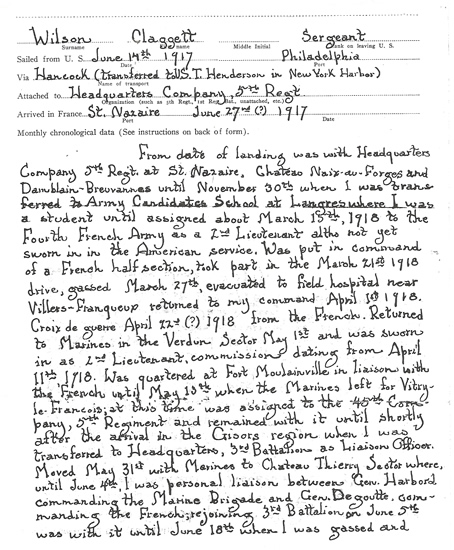 Wilson Claggett Sergeant
Surname name Middle Initial Rank on leaving U. S.
Sailed from U. S. June 14th 1917 Philadelphia
Date Port
Via Hancock (transferred to U.S.T. Henderson in New York Harbor)
Name of transport
Attached to Headquarters Company, 5th Regt.
Organization (such as 5th Regt., 1st Repl. Bat., unattached, etc.)
Arrived in France St. Nazaire June 27nd (?) 1917
Port Date
Monthly chronological data (See instructions on back of form).
From date of landing was with Headquarters
Company 5th Regt. at St. Nazaire. Chateau Naix-au-Forges and
Damblain-Breuvannes until November 30th when I was trans
ferred to Army Candidates School at Langres where I was
a student until assigned about March 15th, 1918 to the
Fourth French Army as a 2nd Lieutenant altho not yet
sworn in in the American service. Was put in command
of a French half section, took part in the March 21st 1918
drive, gassed March 27th, evacuated to field hospital near
Villers-Franqueux returned to my command April 1st 1918.
Croix de guerre April 22d (?) 1918 from the French. Returned
to Marines in the Verdun Sector May 1st and was sworn
in as 2nd Lieutenant, commission dating from April
11th 1918. Was quartered at Fort Moulainville in liaison with
the French until May 13th when the Marines left for Vitry-
le-Francois; at this time was assigned to the 45th Com-
pany, 5th Regiment and remained with it until shortly
after the arrival in the Gisors region when I was
transferred to Headquarters, 3rd Battalion as Liaison Officer.
Moved May 31st with Marines to Chateau Thierry Sector where,
until June 4th, I was personal liaison between Gen. Harbord
commanding the Marine Brigade and Gen. Degoutte. com-
manding the French; rejoining 3rd Battalion on June 5th
was with it until June 18th when I was gassed and